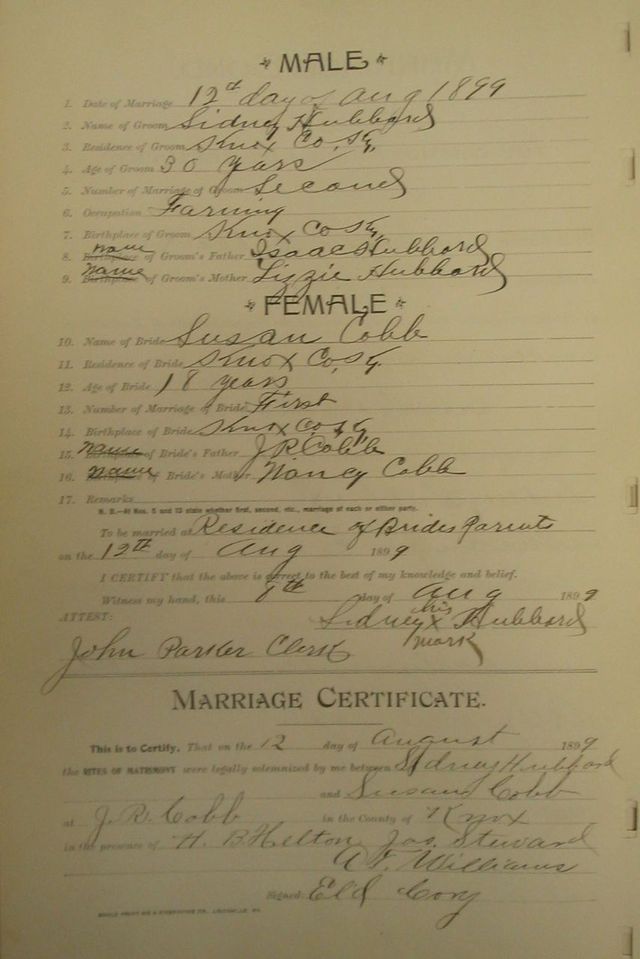 MALE
1. Date of Marriage 12th day of Aug 1899
2. Name of Groom Sidney Hubbard
3. Residence of Groom Knox Co, Ky,
4. Age of Groom 30 years
5. Number of Marriage of Groom Second
6. Occupation Farming
7. Birthplace of Groom Knox Co Ky,
8. Birthplace name of Groom's Father Isaac Hubbard
9. Birthplace Name of Groom's Mother Lizzie Hubbard
FEMALE
10. Name of Bride Susan Cobb
11. Residence of Bride Knox Co, Ky
12. Age of Bride 18 years
13. Number of Marriage of Bride First
14. Birthplace of Bride Knox Co Ky
15. Name of Bride's Father J R Cobb
16. Name of Bride's Mother Nancy Cobb
17. Remarks
N. B.—At Nos. 5 and 13 state whether first, second, etc., marriage of each or either party.
To be married at Residence of Brides Parents
on the 12th day of Aug 1899
I CERTIFY that the above is correct to the best of my knowledge and belief.
Witness my hand, this day of Aug 1899
Sidney his x mark Hubbard
ATTEST:
John Parker Clerk
MARRIAGE CERTIFICATE.
This is to Certify, That on the 12 day of August 1899
the RITES OF MATRIMONY were legally solemnized by me between Sidney Hubbard
and Susan Cobb
at J. R. Cobb in the County of Knox
in the presence of H. B. Helton Jas. Steward
Williams
Signed: Eld Cory